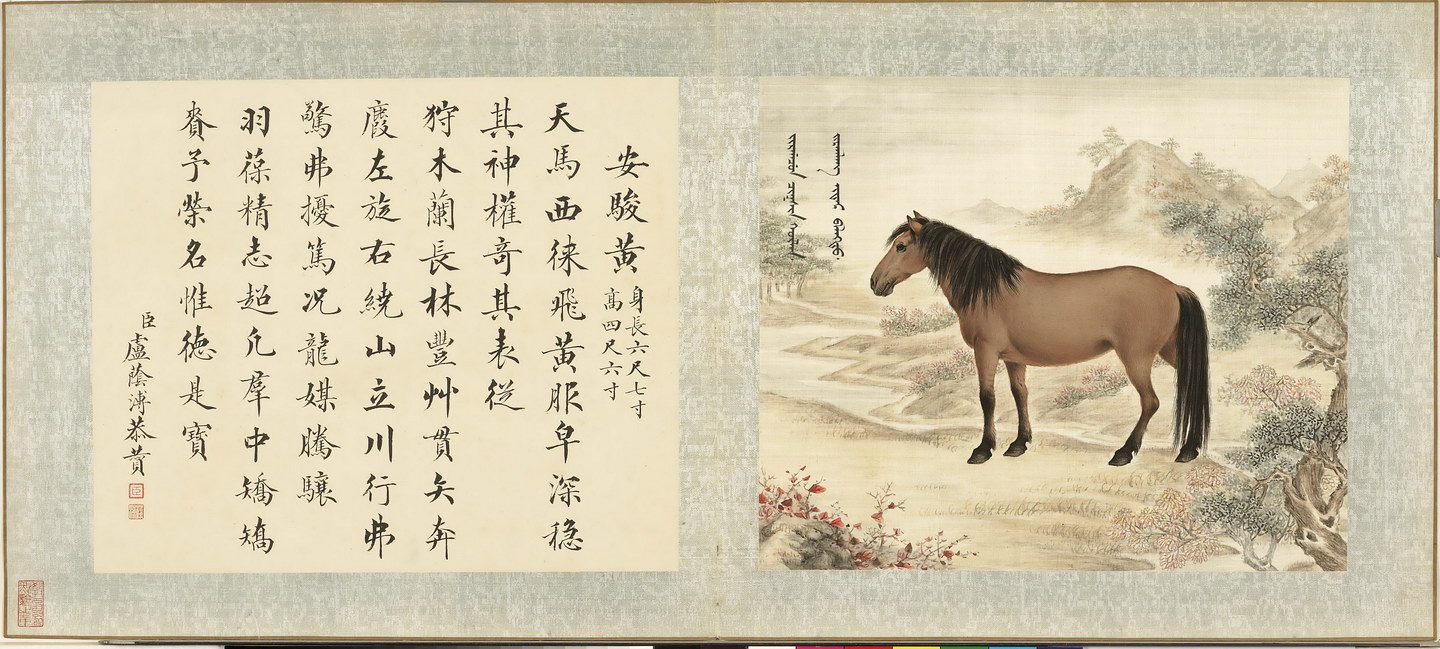 安駿黃 身長六尺七寸
高四尺六寸
天馬西徠飛黃服皁深穩
其神權奇其表從
狩木蘭長林豐艸貫矢奔
麚左旋右繞山立川行弗
驚弗擾篤况龍媒騰驤
羽葆精志超凡羣中矯矯
賚予榮名惟德是寶
臣盧蔭溥恭贊